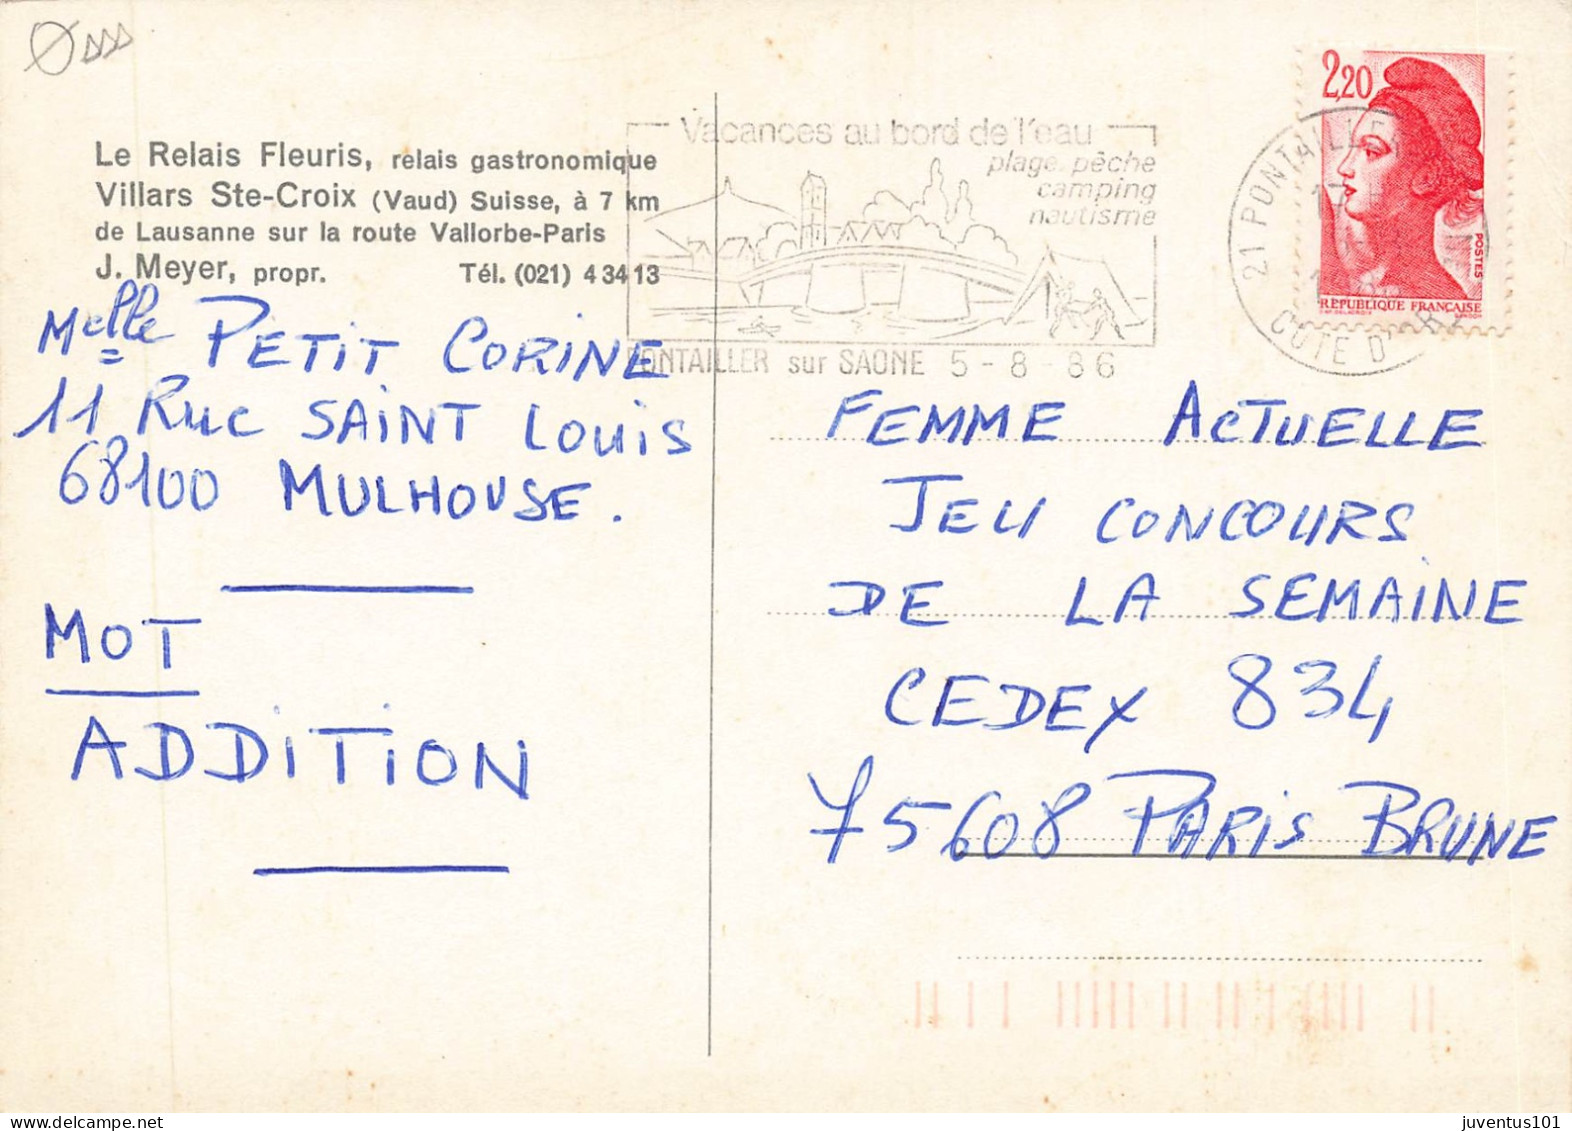 Le Relais Fleuris, relais gastronomique
Villars Ste-Croix (Vaud) Suisse, à 7 km
de Lausanne sur la route Vallorbe-Paris
J. Meyer, propr. Tél. (021) 4 34 13
Melle PETIT CORINE
11 Rue SAINT LOUIS
68100 MULHOUSE.
MOT
ADDITION
Vacances au bord de l'eau
plage pêche
camping
nautisme
PONTAILLER sur SAONE 5-8-86
21 PONTAILLER
COTE D'
2,20
POSTES
RÉPUBLIQUE FRANÇAISE
FEMME ACTUELLE
JEU CONCOURS
DE LA SEMAINE
CEDEX 834
75608 PARIS BRUNE
juventus101